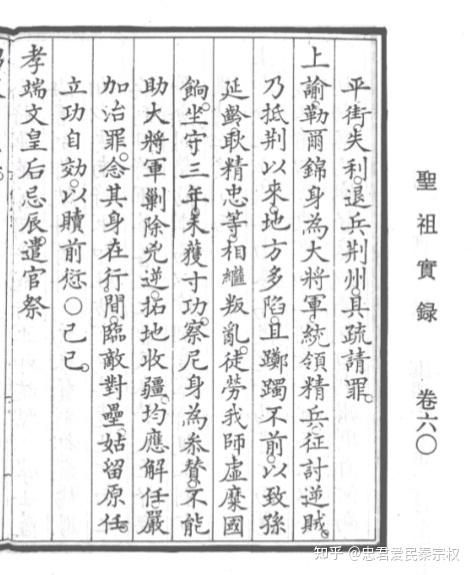 聖祖實錄 卷六〇
平街失利。退兵荆州。具疏請罪。
上諭。勒爾錦身為大將軍。統領精兵。征討逆賊。
乃抵荆以來。地方多陷。且躑躅不前。以致孫
延齡耿精忠等。相繼叛亂。徒勞我師。虛糜國
餉。坐守三年。未獲寸功。察尼身為叅贊。不能
助大將軍剿除兇逆。拓地收疆。均應解任嚴
加治罪。念其身在行間。臨敵對壘。姑留原任。
立功自效。以贖前愆〇己巳。
孝端文皇后忌辰。遣官祭
知乎 @忠君爱民秦宗权